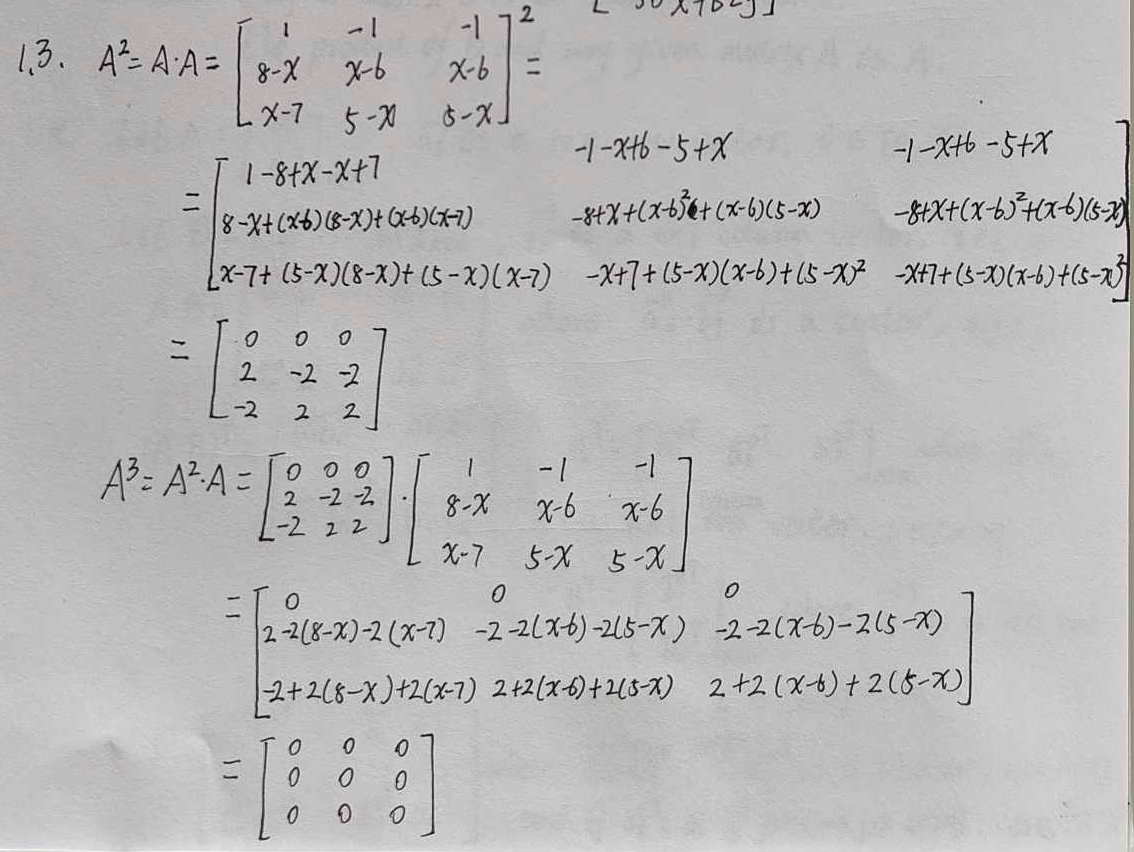 1.3. A²=A·A= [1 -1 -1
8-x x-6 x-6
x-7 5-x 5-x]² =
= [1-8+x-x+7 -1-x+6-5+x -1-x+6-5+x
8-x+(x-6)(8-x)+(x-6)(x-7) -8+x+(x-6)²+(x-6)(5-x) -8+x+(x-6)²+(x-6)(5-x)
x-7+(5-x)(8-x)+(5-x)(x-7) -x+7+(5-x)(x-6)+(5-x)² -x+7+(5-x)(x-6)+(5-x)²]
= [0 0 0
2 -2 -2
-2 2 2]
A³=A²·A= [0 0 0
2 -2 -2
-2 2 2] · [1 -1 -1
8-x x-6 x-6
x-7 5-x 5-x]
= [0 0 0
2-2(8-x)-2(x-7) -2-2(x-6)-2(5-x) -2-2(x-6)-2(5-x)
-2+2(8-x)+2(x-7) 2+2(x-6)+2(5-x) 2+2(x-6)+2(5-x)]
= [0 0 0
0 0 0
0 0 0]